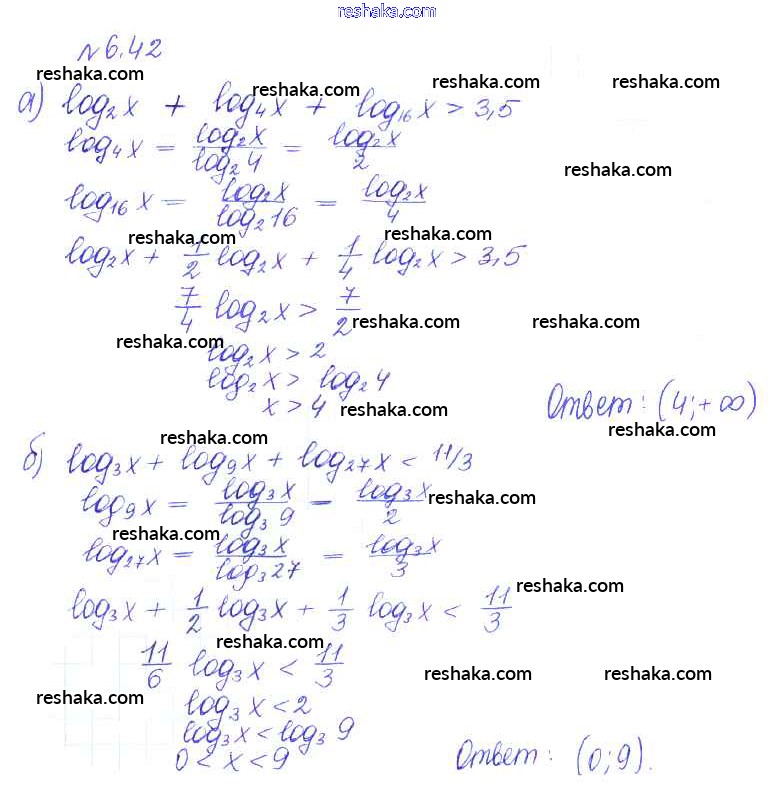 reshaka.com
№6.42
reshaka.com reshaka.com reshaka.com reshaka.com
а) log₂x + log₄x + log₁₆x > 3,5
log₄x = log₂x / log₂4 = log₂x / 2
reshaka.com
log₁₆x = log₂x / log₂16 = log₂x / 4
reshaka.com reshaka.com
log₂x + 1/2 log₂x + 1/4 log₂x > 3,5
7/4 log₂x > 7/2
reshaka.com reshaka.com reshaka.com
log₂x > 2
log₂x > log₂4
x > 4 reshaka.com Ответ: (4;+∞)
reshaka.com reshaka.com
б) log₃x + log₉x + log₂₇x < 11/3
log₉x = log₃x / log₃9 – log₃x / 2 reshaka.com
reshaka.com
log₂₇x = log₃x / log₃27 = log₃x / 3
reshaka.com
log₃x + 1/2 log₃x + 1/3 log₃x < 11/3
reshaka.com
11/6 log₃x < 11/3
reshaka.com reshaka.com reshaka.com
log₃x < 2
log₃x < log₃9
0 < x < 9 Ответ: (0;9).